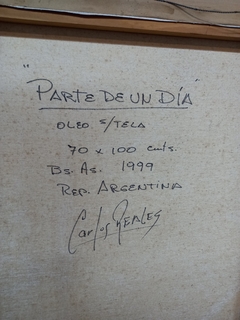 "PARTE DE UN DÍA"
OLEO S/TELA
70 x 100 cmts.
Bs. As. 1999
REP. ARGENTINA
Carlos REALES